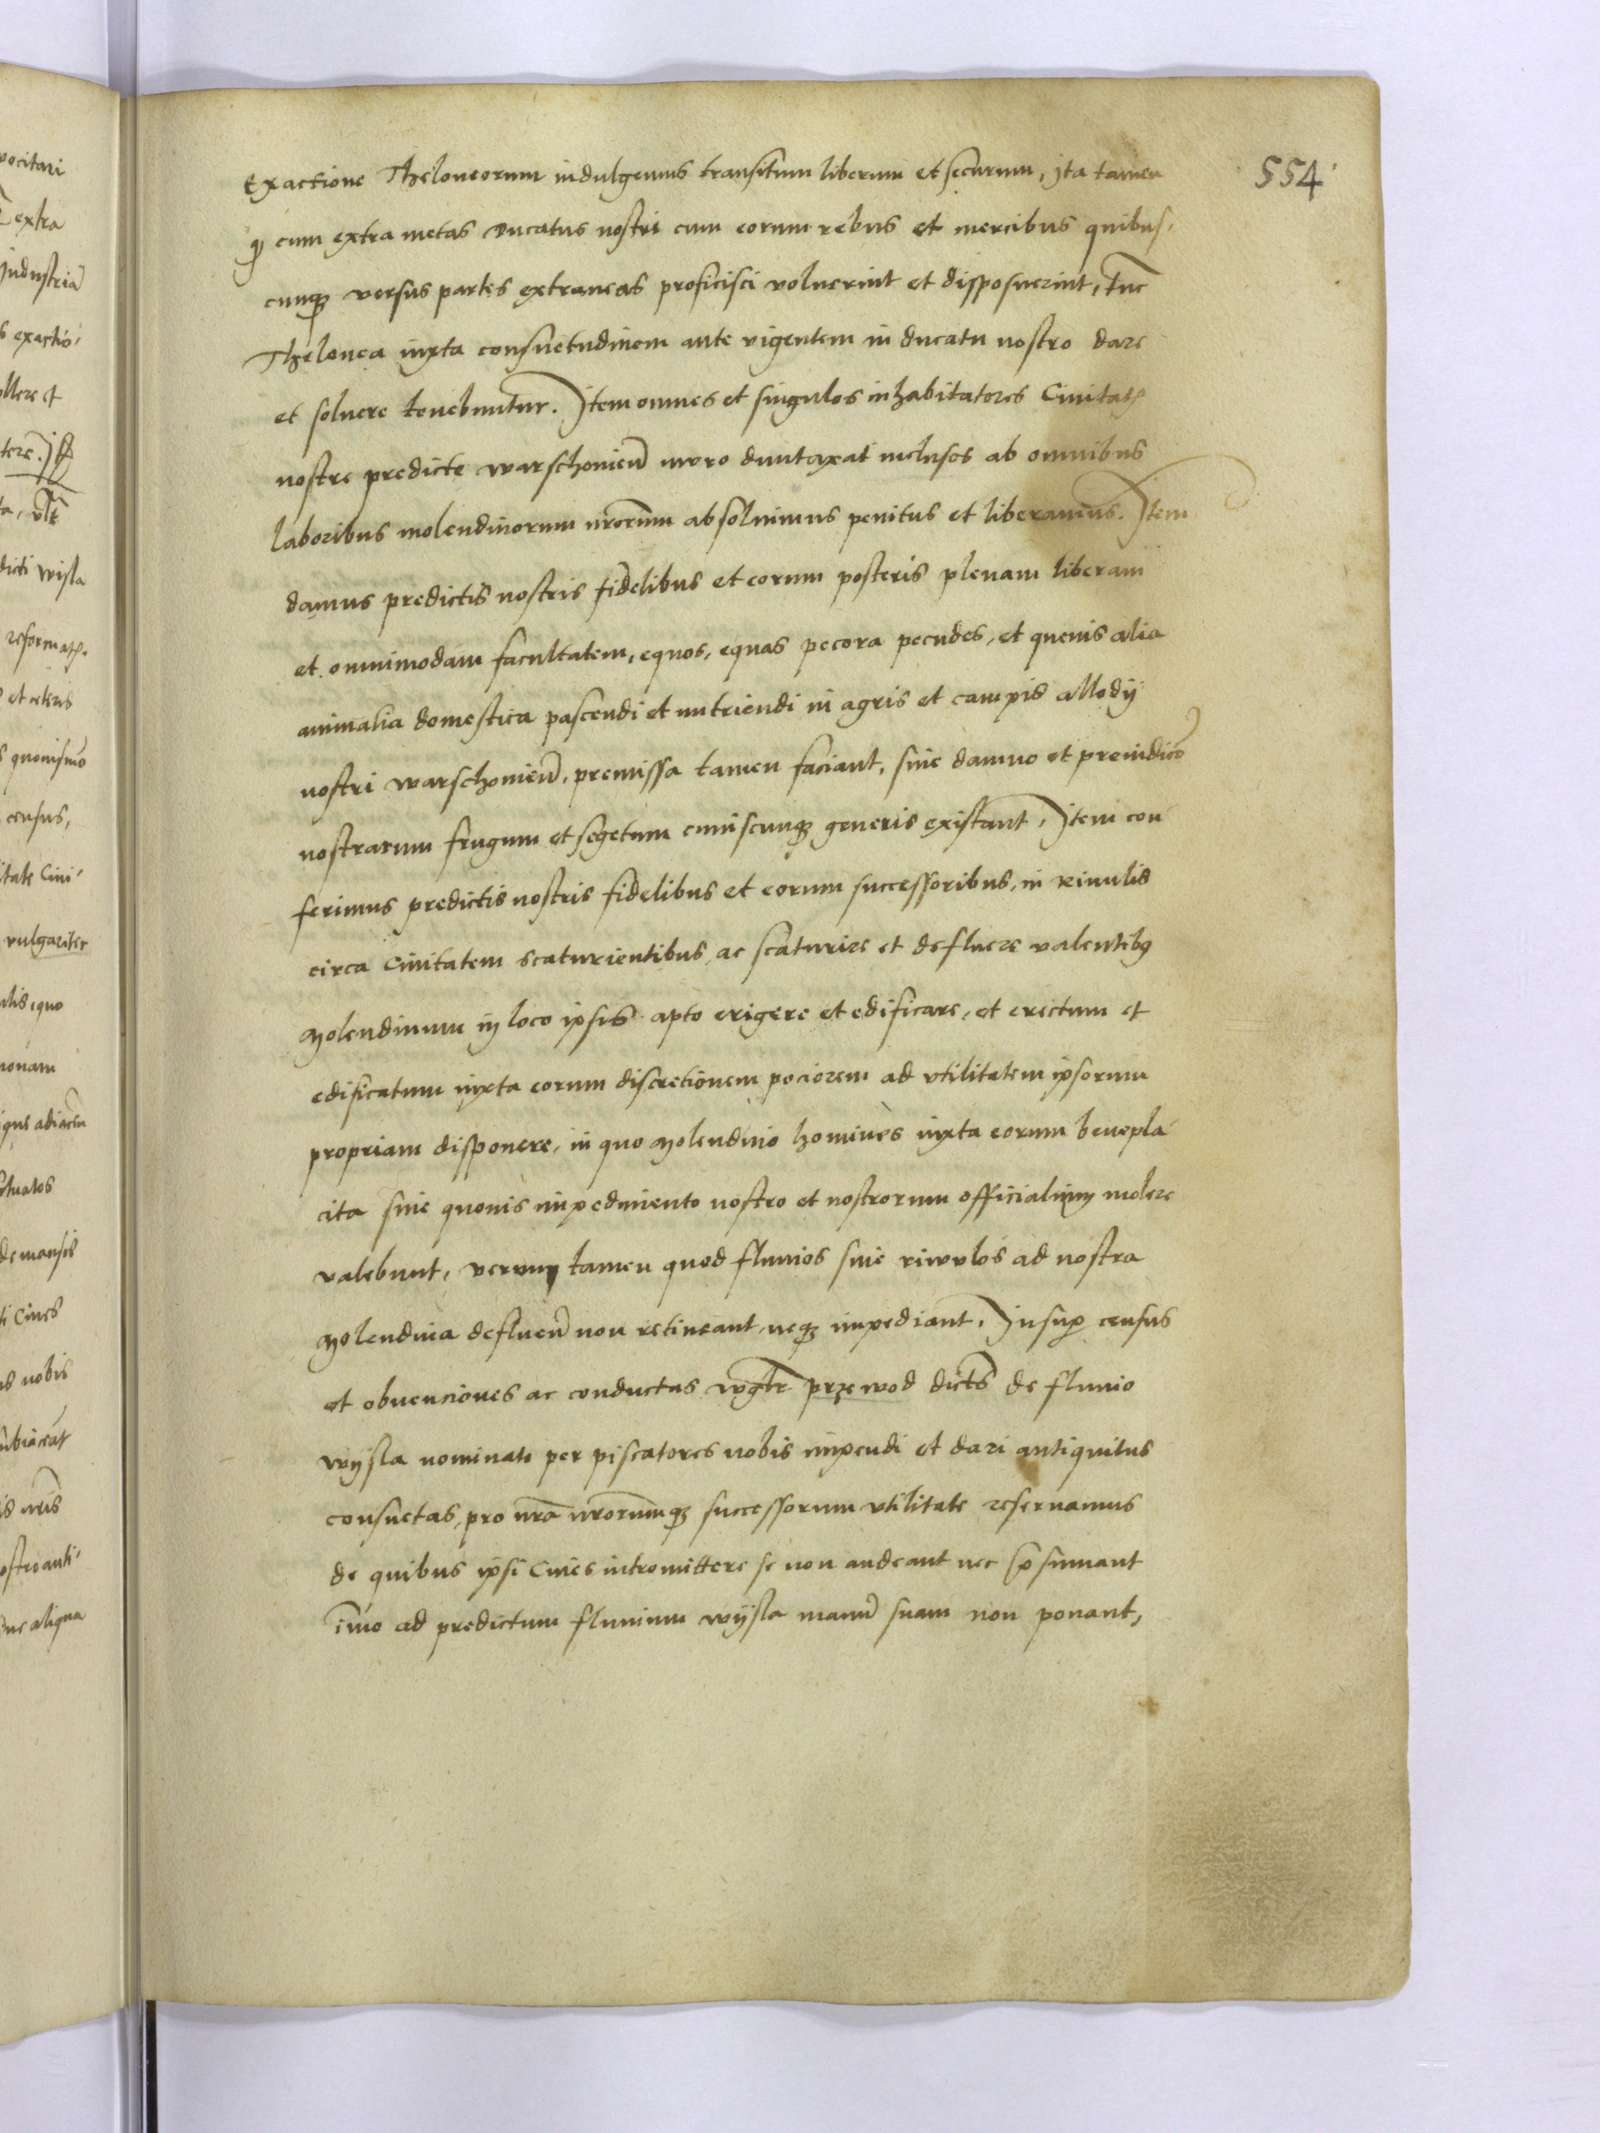 554
Exactione Theloneorum indulgemus transitum liberum et securum, ita tamen
qɔ cum extra metas Ducatus nostri cum eorum rebus et mercibus quibus-
cunqꝫ versus partes extraneas proficisci voluerint et disposuerint, tunc
Thelonea iuxta consuetudinem ante vigentem in ducatu nostro dare
et soluere tenebuntur. Item omnes et singulos inhabitatores Ciuitatis
nostre predicte warschouien̄ muro duntaxat inclusos ab omnibus
laboribus molendinorum nr̄orum absoluimus penitus et liberamus. Item
damus predictis nostris fidelibus et eorum posteris plenam liberam
et omnimodam facultatem, equos, equas pecora pecudes, et queuis alia
animalia domestica pascendi et nutriendi in agris et campis allodij
nostri warschouien̄, premissa tamen faciant, sine damno et preiudicio
nostrarum frugum et segetum cuiuscunqꝫ generis existant, Item con
ferimus predictis nostris fidelibus et eorum successoribus, in riuulis
circa Ciuitatem scaturientibus, ac scaturire et defluere valentibꝰ
Molendinum in loco ipsis apto erigere et edificare, et erectum et
edificatum iuxta eorum discretionem pociorem ad vtilitatem ipsorum
propriam disponere, in quo Molendino homines iuxta eorum benepla
cita sine quouis impedimento nostro et nostrorum officialium molere
valebunt, verum tamen quod fluuios siue riwulos ad nostra
Molendina defluen̄ non retineant, neqꝫ impediant, Insup̱ census
et obuenciones ac conductas wgtr̄ przewod dict̄s de fluuio
wysla nominato per piscatores nobis impendi et dari antiquitus
consuetas, pro nr̄a nr̄orumqꝫ successorum vtilitate reseruamus
de quibus ipsi Ciues intromittere se non audeant nec p̄sumant
imo ad predictum fluuium wysla manū suam non ponant,